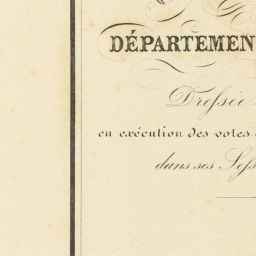 DÉPARTEMEN
Dressée
en exécution des votes
dans ses Sess